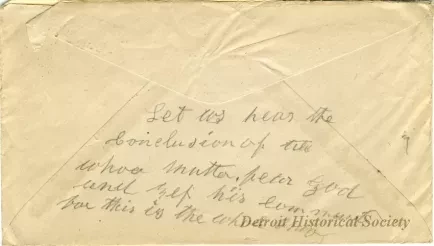 Let us hear the
Conclusion of the
whoa matter. fear God
and kep his
for this is the
Detroit Historical Society